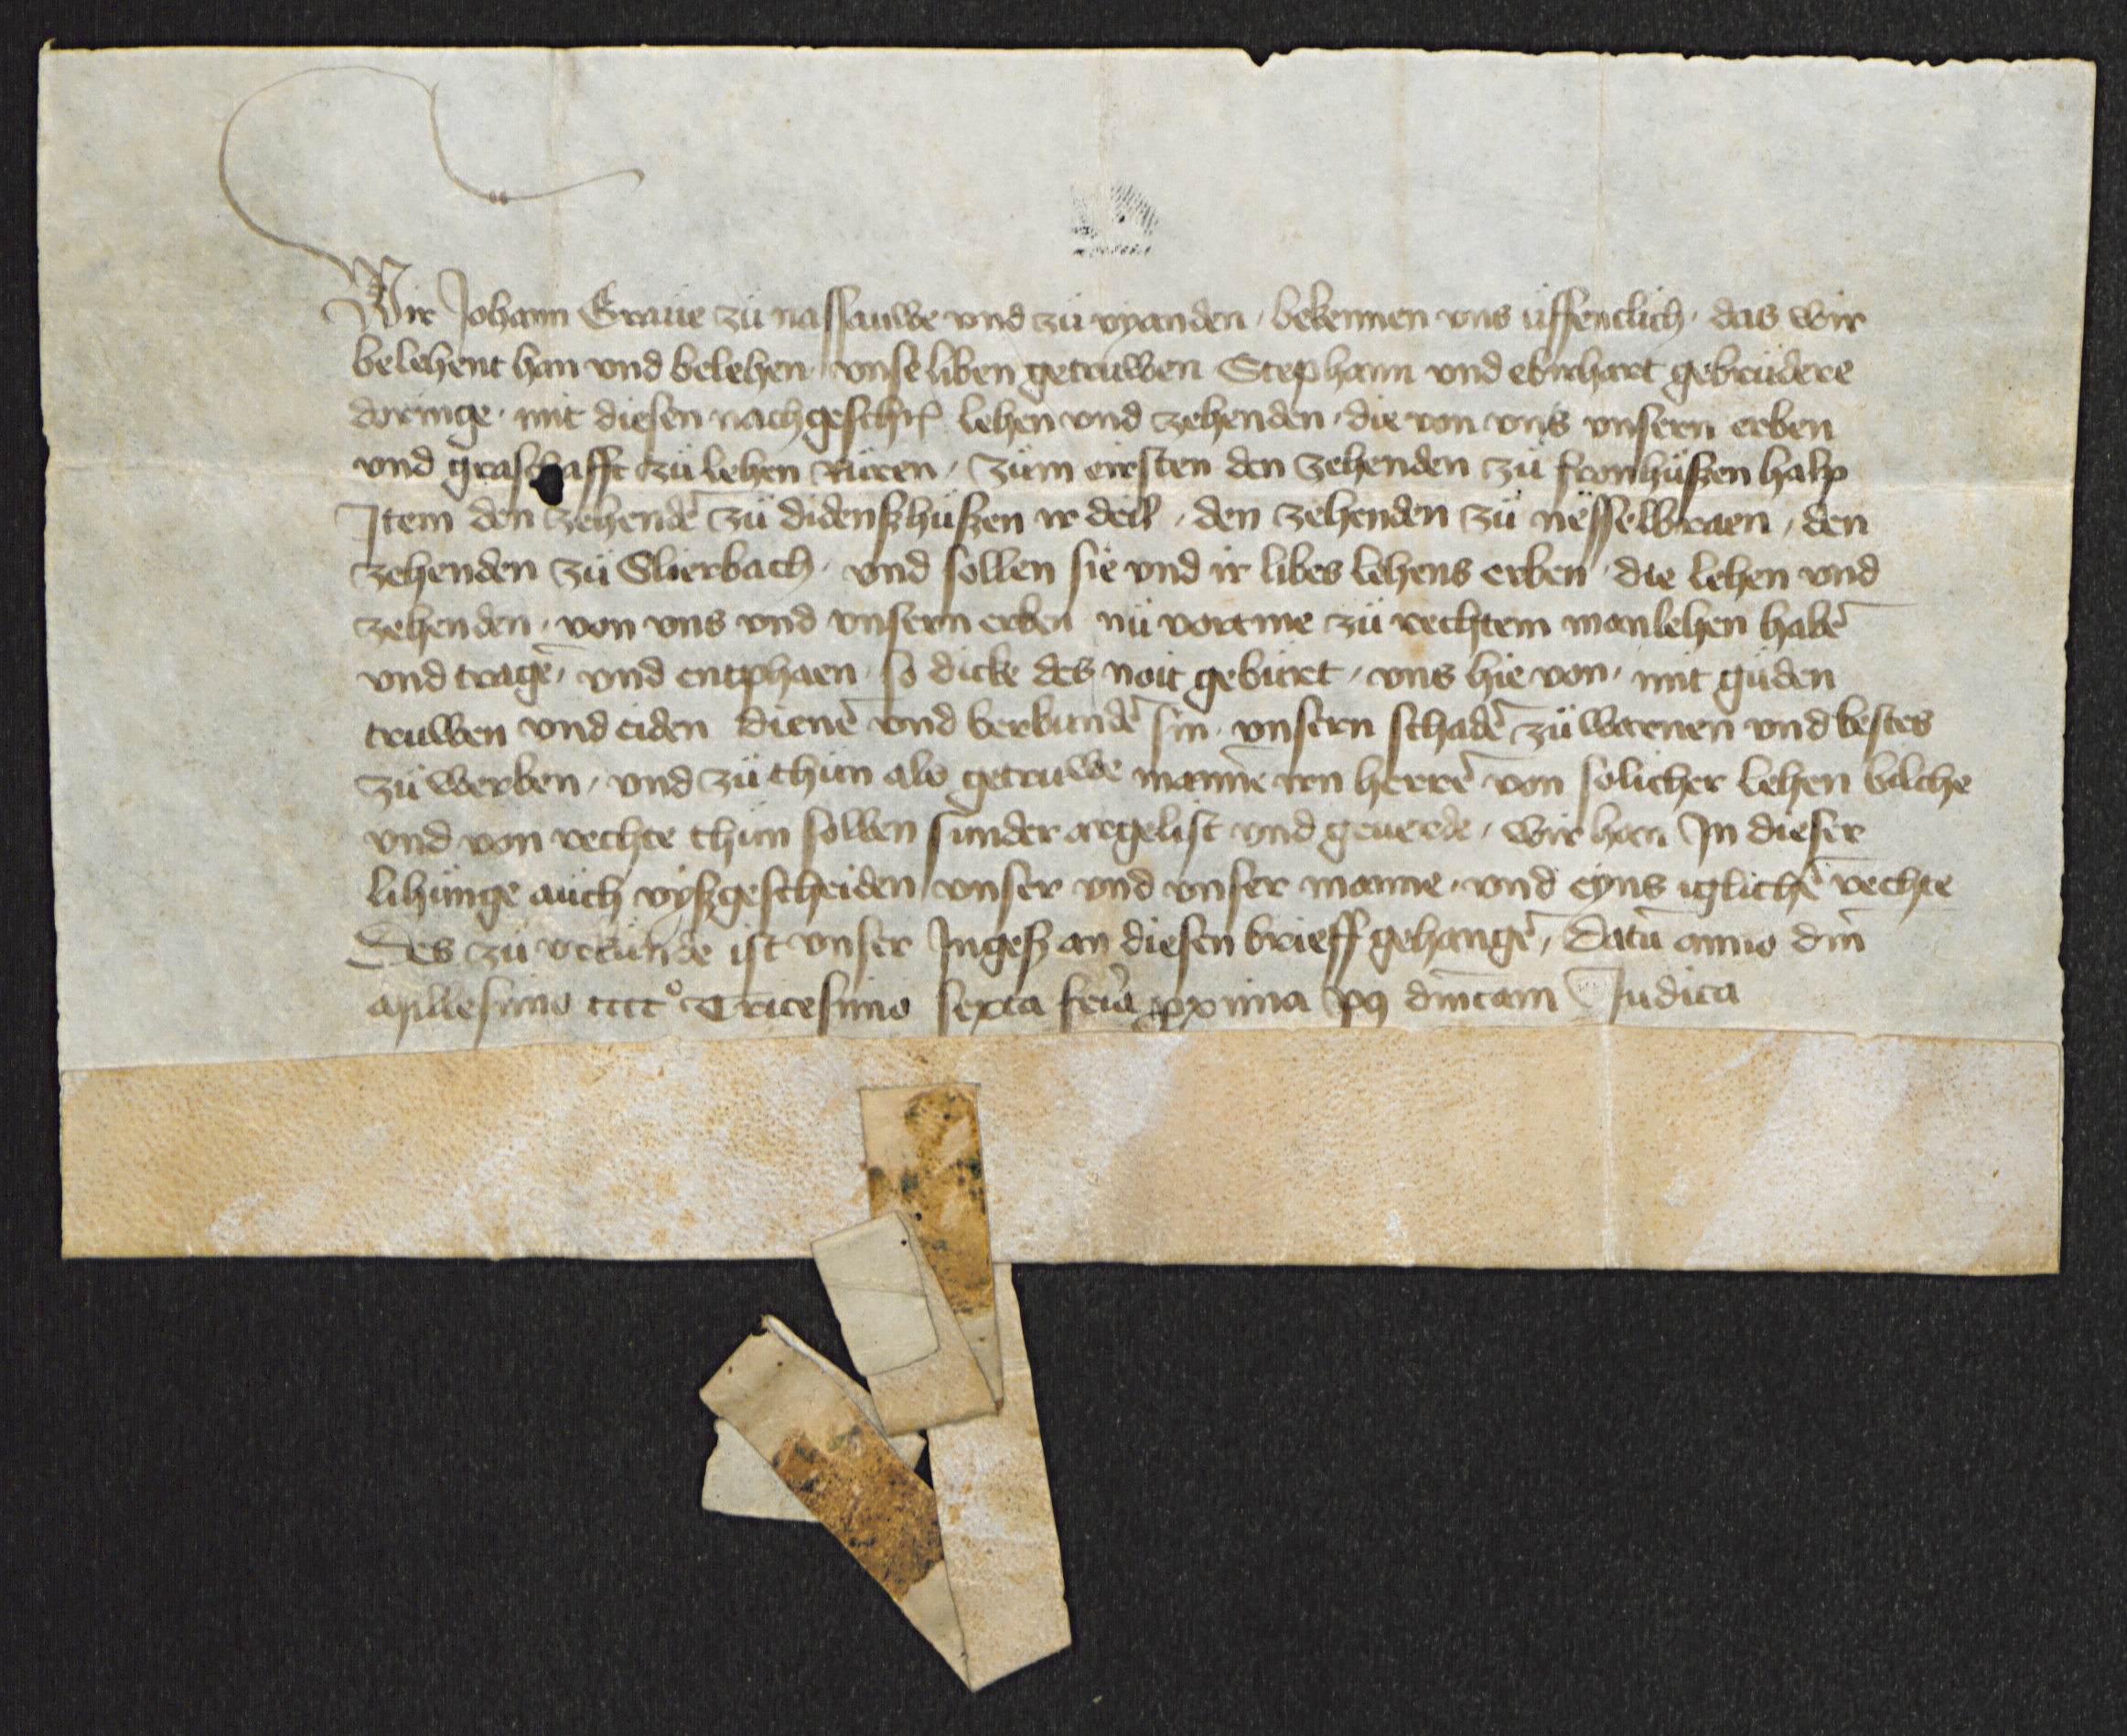 Wir Johann Graue zü nassauwe vnd zü vyanden, bekennen vns uffentlich, das wir
belehent han vnd belehen vnsẽ liben getruwen Stephann vnd ebirhart gebrüdere
doringe, mit diesen nachgeschr lehen vnd zehenden, die von vns vnsern erben
vnd graschafft zü lehen rüren, zum eirsten den zehenden zü fronhüßen halp
Item den zehendẽ zü didenßhüßen ir deil, den zehenden zü nësselbraen, den
zehenden zü Slierbach, vnd sollen sie vnd ir libes lehens erben, die lehen vnd
zehenden, von vns vnd vnsern erben nü vortme zü rechtem manlehen habẽ
vnd tragẽ, vnd entphaen, so dicke des noit gebürt, vns hie von, mit güden
truwen vnd eiden dienẽ vnd verbundẽ sin, vnsern schadẽ zü warnen vnd bestes
zü werben, vnd zü thün als getruwe mannẽ irn herrẽ von solicher lehen biliche
vnd von rechte thün sollen sunder argelist vnd geuerde, wir han In dieser
lihünge aüch vyßgescheiden vnser vnd vnser manne, vnd eyns iglichẽ rechte
Des zü vrkünde ist vnser Ingeß an diesen brieff gehangẽ, Datũ anno dm̃
Millesimo cccc° Tricesimo sexta feria proxima p9 dm̃cam Judica